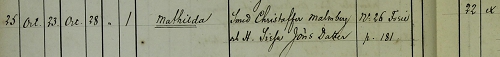 25 Oct. 23 Oct. 28 " 1 Mathilda Smed Christoffer Malmberg No 26 Fosie 22 ex
och H. Sissa Jöns Dotter p. 181